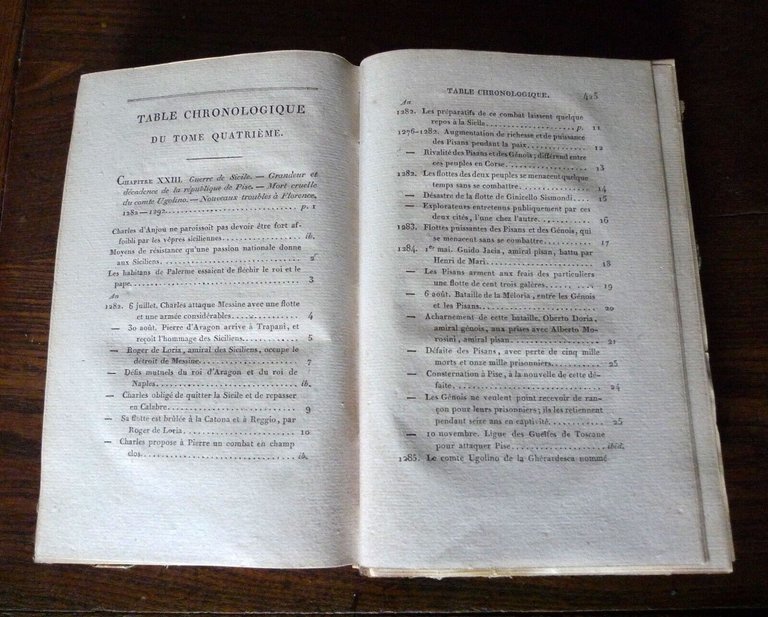 TABLE CHRONOLOGIQUE
DU TOME QUATRIÈME.
CHAPITRE XXIII. Guerre de Sicile. — Grandeur et
décadence de la république de Pise. — Mort cruelle
du comte Ugolino. — Nouveaux troubles à Florence,
1282—1292. p. 1
Charles d'Anjou ne paroissoit pas devoir être fort af-
foibli par les vêpres siciliennes ib.
Moyens de résistance qu'une passion nationale donne
aux Siciliens 2
Les habitans de Palerme essaient de fléchir le roi et le
pape 3
An
1282. 6 juillet. Charles attaque Messine avec une flotte
et une armée considérables 4
— 30 août. Pierre d'Aragon arrive à Trapani, et
reçoit l'hommage des Siciliens 5
— Roger de Loria, amiral des Siciliens, occupe le
détroit de Messine 7
— Défis mutuels du roi d'Aragon et du roi de
Naples ib.
— Charles obligé de quitter la Sicile et de repasser
en Calabre 9
— Sa flotte est brûlée à la Catona et à Reggio, par
Roger de Loria 10
— Charles propose à Pierre un combat en champ
clos ib.
TABLE CHRONOLOGIQUE. 425
An
1282. Les préparatifs de ce combat laissent quelque
repos à la Sicile p. 11
1276-1282. Augmentation de richesse et de puissance
des Pisans pendant la paix 12
— Rivalité des Pisans et des Génois; différent entre
ces peuples en Corse 13
1282. Les flottes des deux peuples se menacent quelque
temps sans se combattre 14
— Désastre de la flotte de Ginicello Sismondi 15
— Explorateurs entretenus publiquement par ces
deux cités, l'une chez l'autre 16
1283. Flottes puissantes des Pisans et des Génois, qui
se menacent sans se combattre 17
1284. 1er mai. Guido Jacia, amiral pisan, battu par
Henri de Mari 18
— Les Pisans arment aux frais des particuliers
une flotte de cent trois galères 19
— 6 août. Bataille de la Méloria, entre les Génois
et les Pisans 20
— Acharnement de cette bataille. Oberto Doria,
amiral génois, aux prises avec Alberto Mo-
rosini, amiral pisan 21
— Défaite des Pisans, avec perte de cinq mille
morts et onze mille prisonniers 23
— Consternation à Pise, à la nouvelle de cette dé-
faite 24
— Les Génois ne veulent point recevoir de ran-
çon pour leurs prisonniers; ils les retiennent
pendant seize ans en captivité 25
— 10 novembre. Ligue des Guelfes de Toscane
pour attaquer Pise ibid.
1285. Le comte Ugolino de la Ghérardesca nommé